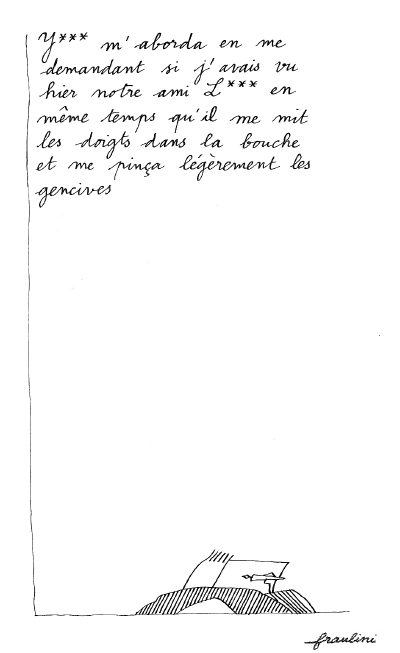 Y*** m'aborda en me
demandant si j'avais vu
hier notre ami L*** en
même temps qu'il me mit
les doigts dans la bouche
et me pinça légèrement les
gencives
fraulini